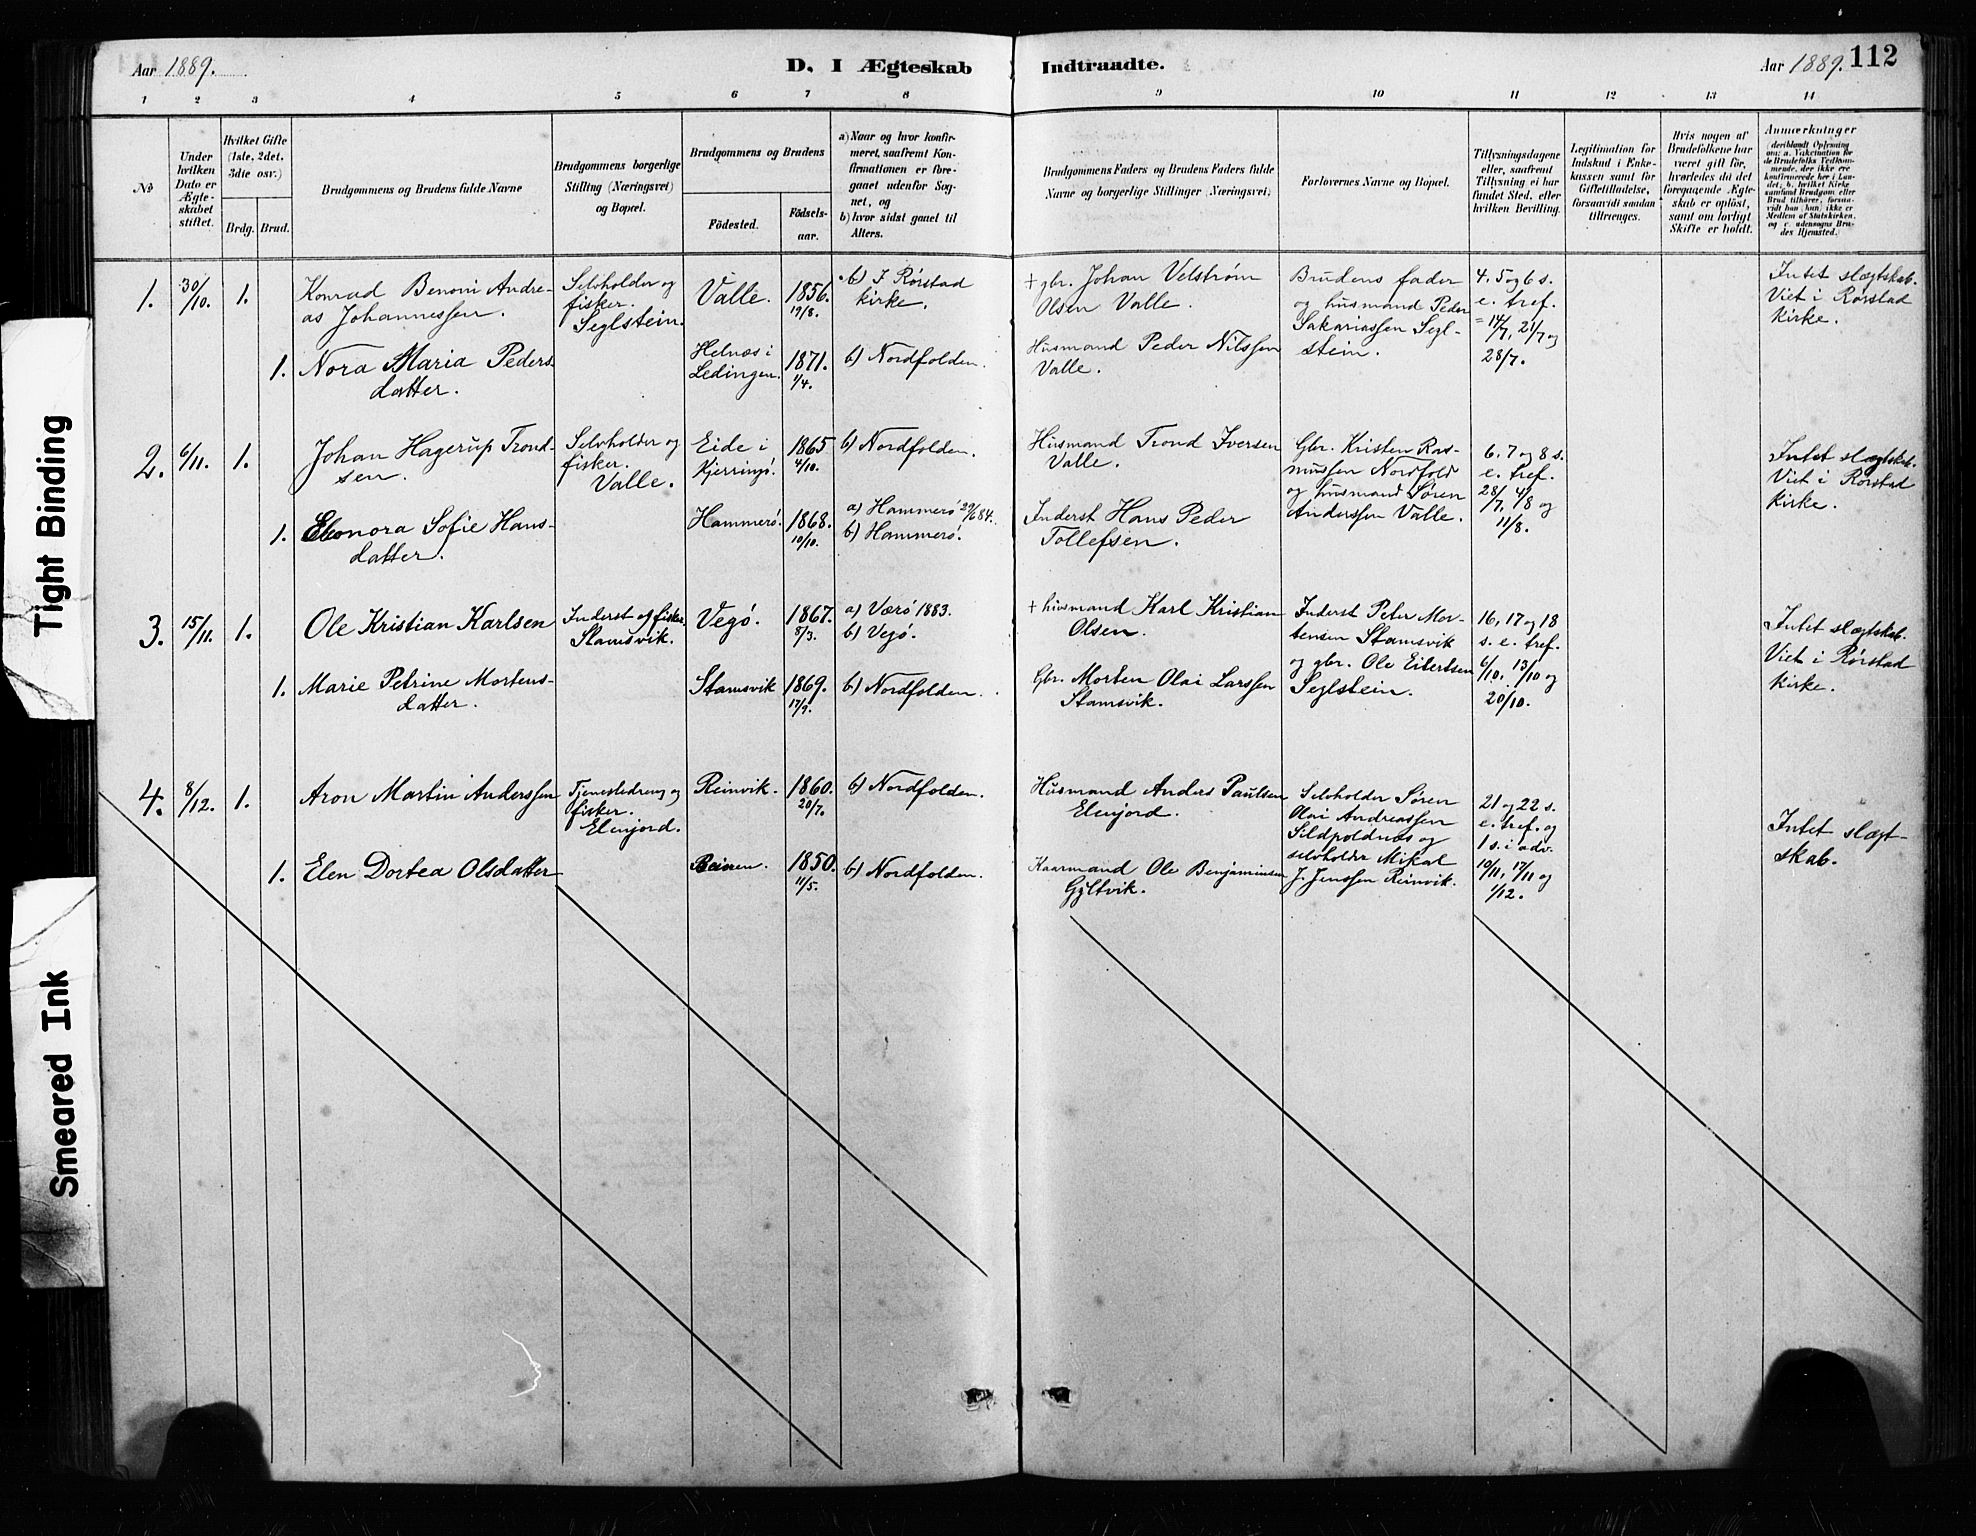 Tight Binding
Smeared Ink
Aar 1889.
D. I Ægteskab
Indtraadte.
Aar 1889.
112
1 2 3 4 5 6 7 8 9 10 11 12 13 14
No
Under hvilken Dato er Ægteskabet stiftet.
Hvilket Gifte (1ste, 2det, 3die osv.)
Brdg. Brud.
Brudgommens og Brudens fulde Navne
Brudgommens borgerlige Stilling (Næringsvei) og Bopæl.
Brudgommens og Brudens
Födested.
Födselsaar.
a) Naar og hvor konfirmeret, saafremt Konfirmationen er foregaaet udenfor Sognet, og
b) hvor sidst gaaet til Alters.
Brudgommens Faders og Brudens Faders fulde Navne og borgerlige Stillinger (Næringsvei)
Forlovernes Navne og Bopæl.
Tillysningsdagene eller, saafremt Tillysning ei har fundet Sted, efter hvilken Bevilling.
Legitimation for Indskud i Enkekassen samt for Giftetilladelse, forsaavidt saadan tiltrænges.
Hvis nogen af Brudefolkene har været gift för, hvorledes da det foregaaende Ægteskab er oplöst, samt om lovligt Skifte er holdt.
Anmærkninger
(deriblandt Oplysning om: a. Vakcination for de Brudefolks Vedkommende, der ikke ere konfirmerede her i Landet; b. hvilket Kirkesamfund Brudgom eller Brud tilhörer, forsaavidt han (hun) ikke er Medlem af Statskirken, og c. udensogns Brudes Hjemsted.)
1. 30/10. 1.
Konrad Benoni Andre-
as Johannessen.
Selvholder og
fisker.
Seglstein.
Valle.
1856.
19/8.
b) I Rørstad
kirke.
+ gbr. Johan Velstrøm
Olsen Valle.
Brudens fader
og husmand Peder
Sakariassen Segl-
stein.
4. 5 og 6 s.
e. tref.
= 14/7, 21/7 og
28/7.
Intet slægtskab.
Viet i Rørstad
kirke.
1.
Nora Maria Peders-
datter.
Helnæs i
Lødingen.
1871.
1/4.
b) Nordfolden.
Husmand Peder Nilssen
Valle.
2. 6/11. 1.
Johan Hagerup Trond-
sen.
Selvholder og
fisker.
Valle.
Eide i
Kjerringø.
1865
4/10.
b) Nordfolden.
Husmand Trond Iversen
Valle.
Gbr. Kristen Ras-
mussen Nordfold
og husmand Søren
Anderssen Valle.
6, 7 og 8 s.
e. tref.
28/7, 4/8 og
11/8.
Intet slægtskab.
Viet i Rørstad
kirke.
1.
Eleonora Sofie Hans-
datter.
Hammerø.
1868.
10/10.
a) Hammerø 29/6 84.
b) Hammerø.
Inderst Hans Peder
Tollefsen.
3. 15/11. 1.
Ole Kristian Karlsen
Inderst og fisker
Stamsvik.
Vegø.
1867.
8/3.
a) Værø 1883.
b) Vegø.
+ husmand Karl Kristian
Olsen.
Inderst Peter Mor-
tensen Stamsvik
og gbr. Ole Eilertsen
Seglstein.
16, 17 og 18
s. e. tref.
6/10, 13/10 og
20/10.
Intet slægtskab.
Viet i Rørstad
kirke.
1.
Marie Petrine Mortens-
datter.
Stamsvik
1869.
17/9.
b) Nordfolden.
Gbr. Morten Olai Larssen
Stamsvik.
4. 8/12. 1.
Aron Martin Anderssen
Tjenestedreng og
fisker.
Elvejord.
Reinvik.
1860.
20/7.
b) Nordfolden.
Husmand Anders Paulsen
Elvejord.
Selvholder Søren
Olai Andreassen
Sildpoldnæs og
selvholder Mikal
J. Jenssen Reinvik.
21 og 22 s.
e. tref. og
1 s. i adv.
10/11, 17/11 og
1/12.
Intet slægt-
skab.
1.
Elen Dortea Olsdatter
Beieren.
1850.
11/5.
b) Nordfolden.
Kaarmand Ole Benjaminsen
Gyltvik.